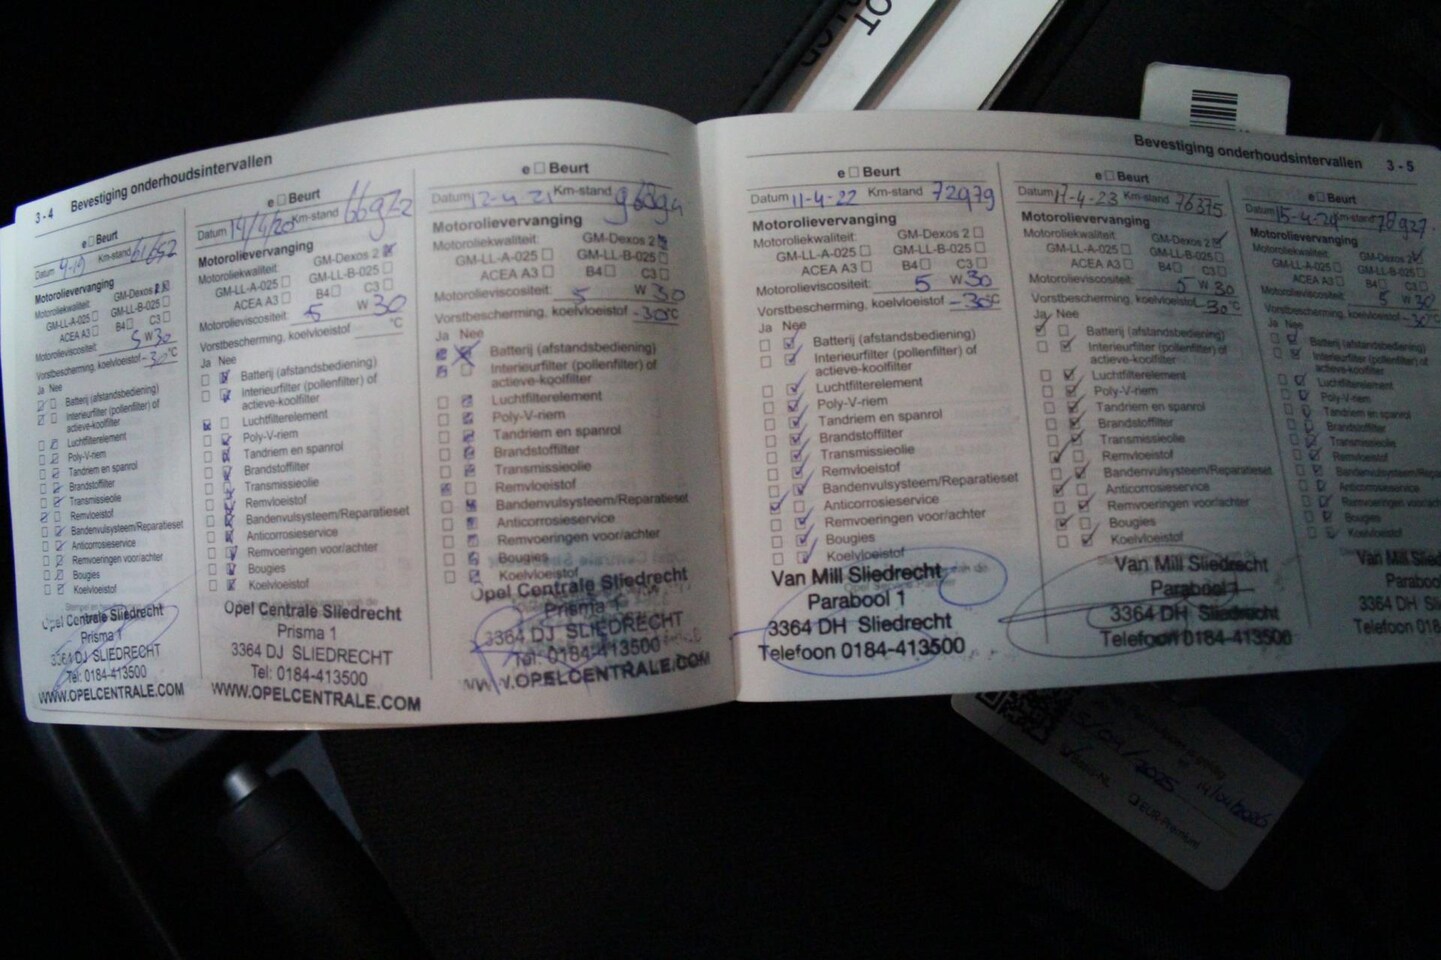 3-4 Bevestiging onderhoudsintervallen
e☐Beurt
Datum 4-19 Km-stand 61652
Motorolievervanging
Motoroliekwaliteit: GM-Dexos 2
GM-LL-A-025 GM-LL-B-025
ACEA A3 B4 C3
Motorolieviscositeit: 5 W 30
Vorstbescherming, koelvloeistof -30°C
Ja Nee
Batterij (afstandsbediening)
Interieurfilter (pollenfilter) of
actieve-koolfilter
Luchtfilterelement
Poly-V-riem
Tandriem en spanrol
Brandstoffilter
Transmissieolie
Remvloeistof
Bandenvulsysteem/Reparatieset
Anticorrosieservice
Remvoeringen voor/achter
Bougies
Koelvloeistof
Opel Centrale Sliedrecht
Prisma 1
3364 DJ SLIEDRECHT
Tel: 0184-413500
WWW.OPELCENTRALE.COM
e☐Beurt
Datum 14/4/20 Km-stand 66922
Motorolievervanging
Motoroliekwaliteit: GM-Dexos 2
GM-LL-A-025 GM-LL-B-025
ACEA A3 B4 C3
Motorolieviscositeit: 5 W 30
Vorstbescherming, koelvloeistof °C
Ja Nee
Batterij (afstandsbediening)
Interieurfilter (pollenfilter) of
actieve-koolfilter
Luchtfilterelement
Poly-V-riem
Tandriem en spanrol
Brandstoffilter
Transmissieolie
Remvloeistof
Bandenvulsysteem/Reparatieset
Anticorrosieservice
Remvoeringen voor/achter
Bougies
Koelvloeistof
Opel Centrale Sliedrecht
Prisma 1
3364 DJ SLIEDRECHT
Tel: 0184-413500
WWW.OPELCENTRALE.COM
e☐Beurt
Datum 12-4-21 Km-stand
Motorolievervanging
Motoroliekwaliteit: GM-Dexos 2
GM-LL-A-025 GM-LL-B-025
ACEA A3 B4 C3
Motorolieviscositeit: 5 W 30
Vorstbescherming, koelvloeistof -30°C
Ja Nee
Batterij (afstandsbediening)
Interieurfilter (pollenfilter) of
actieve-koolfilter
Luchtfilterelement
Poly-V-riem
Tandriem en spanrol
Brandstoffilter
Transmissieolie
Remvloeistof
Bandenvulsysteem/Reparatieset
Anticorrosieservice
Remvoeringen voor/achter
Bougies
Koelvloeistof
Opel Centrale Sliedrecht
Prisma 1
3364 DJ SLIEDRECHT
Tel: 0184-413500
WWW.OPELCENTRALE.COM
Bevestiging onderhoudsintervallen 3-5
e☐Beurt
Datum 11-4-22 Km-stand 72979
Motorolievervanging
Motoroliekwaliteit: GM-Dexos 2
GM-LL-A-025 GM-LL-B-025
ACEA A3 B4 C3
Motorolieviscositeit: 5 W 30
Vorstbescherming, koelvloeistof -30°C
Ja Nee
Batterij (afstandsbediening)
Interieurfilter (pollenfilter) of
actieve-koolfilter
Luchtfilterelement
Poly-V-riem
Tandriem en spanrol
Brandstoffilter
Transmissieolie
Remvloeistof
Bandenvulsysteem/Reparatieset
Anticorrosieservice
Remvoeringen voor/achter
Bougies
Koelvloeistof
Van Mill Sliedrecht
Parabool 1
3364 DH Sliedrecht
Telefoon 0184-413500
e☐Beurt
Datum 17-4-23 Km-stand 76375
Motorolievervanging
Motoroliekwaliteit: GM-Dexos 2
GM-LL-A-025 GM-LL-B-025
ACEA A3 B4 C3
Motorolieviscositeit: 5 W 30
Vorstbescherming, koelvloeistof -30°C
Ja Nee
Batterij (afstandsbediening)
Interieurfilter (pollenfilter) of
actieve-koolfilter
Luchtfilterelement
Poly-V-riem
Tandriem en spanrol
Brandstoffilter
Transmissieolie
Remvloeistof
Bandenvulsysteem/Reparatieset
Anticorrosieservice
Remvoeringen voor/achter
Bougies
Koelvloeistof
Van Mill Sliedrecht
Parabool 1
3364 DH Sliedrecht
Telefoon 0184-413500
e☐Beurt
Datum 15-4-24 Km-stand 78927
Motorolievervanging
Motoroliekwaliteit: GM-Dexos 2
GM-LL-A-025 GM-LL-B-025
ACEA A3 B4 C3
Motorolieviscositeit: 5 W 30
Vorstbescherming, koelvloeistof -30°
Ja Nee
Batterij (afstandsbediening)
Interieurfilter (pollenfilter) of
actieve-koolfilter
Luchtfilterelement
Poly-V-riem
Tandriem en spanrol
Brandstoffilter
Transmissieolie
Remvloeistof
Bandenvulsysteem/Repara
Anticorrosieservice
Remvoeringen voor/ach
Bougies
Koelvloeistof
Van Mill Slied
Parabool
3364 DH Sli
Telefoon 018
14/04/2026
EUR Premium